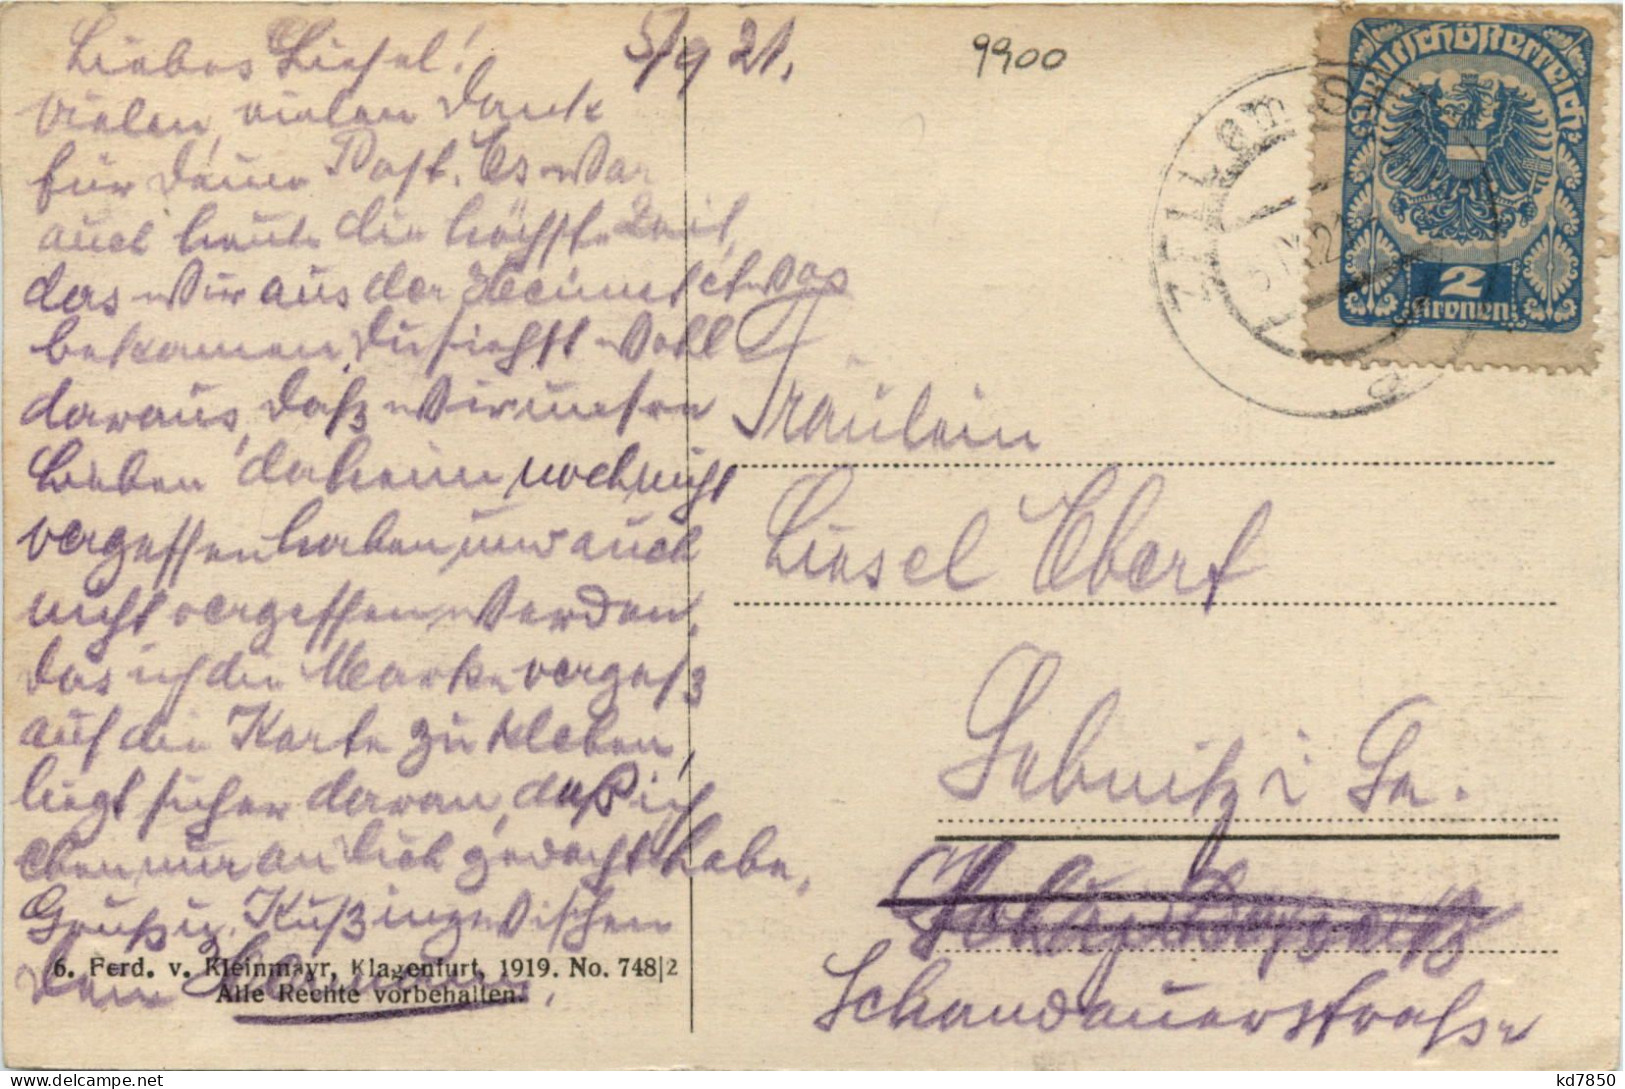 Liebes Liesel! 5/9 21.
vielen, vielen Dank
für Deine Post. Es war
auch heute die höchste Zeit,
das wir aus der Heimat etwas
bekamen, Du siehst wohl
daraus, daß wir unsere
Lieben daheim noch nicht
vergessen haben und auch
nicht vergessen werden.
Das ich die Marke vergaß
auf die Karte zu kleben,
liegt sicher daran, daß ich
eben nur an Dich gedacht habe.
Gruß u. Kuß inzwischen
Dein
6. Ferd. v. Kleinmayr, Klagenfurt, 1919. No. 748|2
Alle Rechte vorbehalten.
9900
Deutschösterreich
2
Kronen
ZELL am
5.IX.21
Fräulein
Liesel Ebert
Sebnitz i Sa.
Schandauerstraße